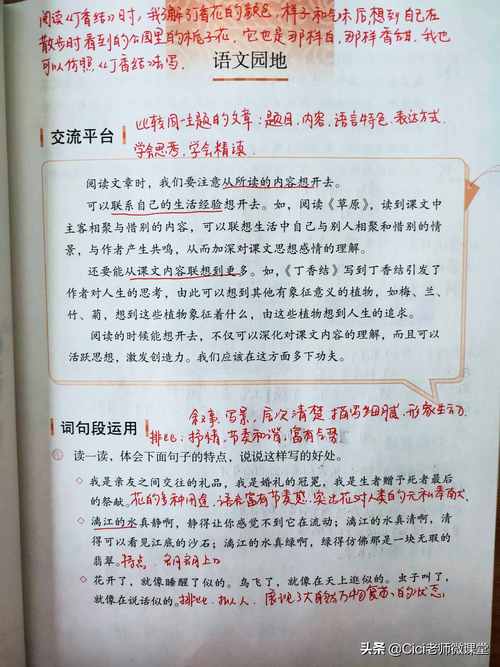 阅读《丁香结》时，我了解了丁香花的颜色、样子和气味后想到自己在
散步时看到的公园里的栀子花，它也是那样白，那样香甜，我也
可以仿照《丁香结》去写。
语文园地
比较同一主题的文章：题目、内容、语言特色、表达方式
交流平台
学会思考，学会精读
阅读文章时，我们要注意从所读的内容想开去。
可以联系自己的生活经验想开去。如，阅读《草原》，读到课文中
主客相聚与惜别的内容，可以联想生活中自己与别人相聚和惜别的情
景，与作者产生共鸣，从而加深对课文思想感情的理解。
还要能从课文内容联想到更多。如，《丁香结》写到丁香结引发了
作者对人生的思考，由此可以想到其他有象征意义的植物，如梅、兰、
竹、菊，想到这些植物象征着什么，由这些植物想到人生的追求。
阅读的时候能想开去，不仅可以深化对课文内容的理解，而且可以
活跃思想，激发创造力。我们应该在这方面多下功夫。
叙事、写景，层次清楚 描写细腻、形象生动
词句段运用
排比：抒情，节奏和谐，富有气势
读一读，体会下面句子的特点，说说这样写的好处。
我是亲友之间交往的礼品，我是婚礼的冠冕，我是生者赠予死者最后
的祭献。花的多种用途，语言富有节奏感，突出花对人类的
漓江的水真静啊，静得让你感觉不到它在流动；漓江的水真清啊，清
得可以看见江底的沙石；漓江的水真绿啊，绿得仿佛那是一块无瑕的
翡翠。特点
花开了，就像睡醒了似的。鸟飞了，就像在天上逛似的。虫子叫了，
就像在说话似的。排比、拟人、展现了大自然万物的状态，
头条 @Cici老师微课堂